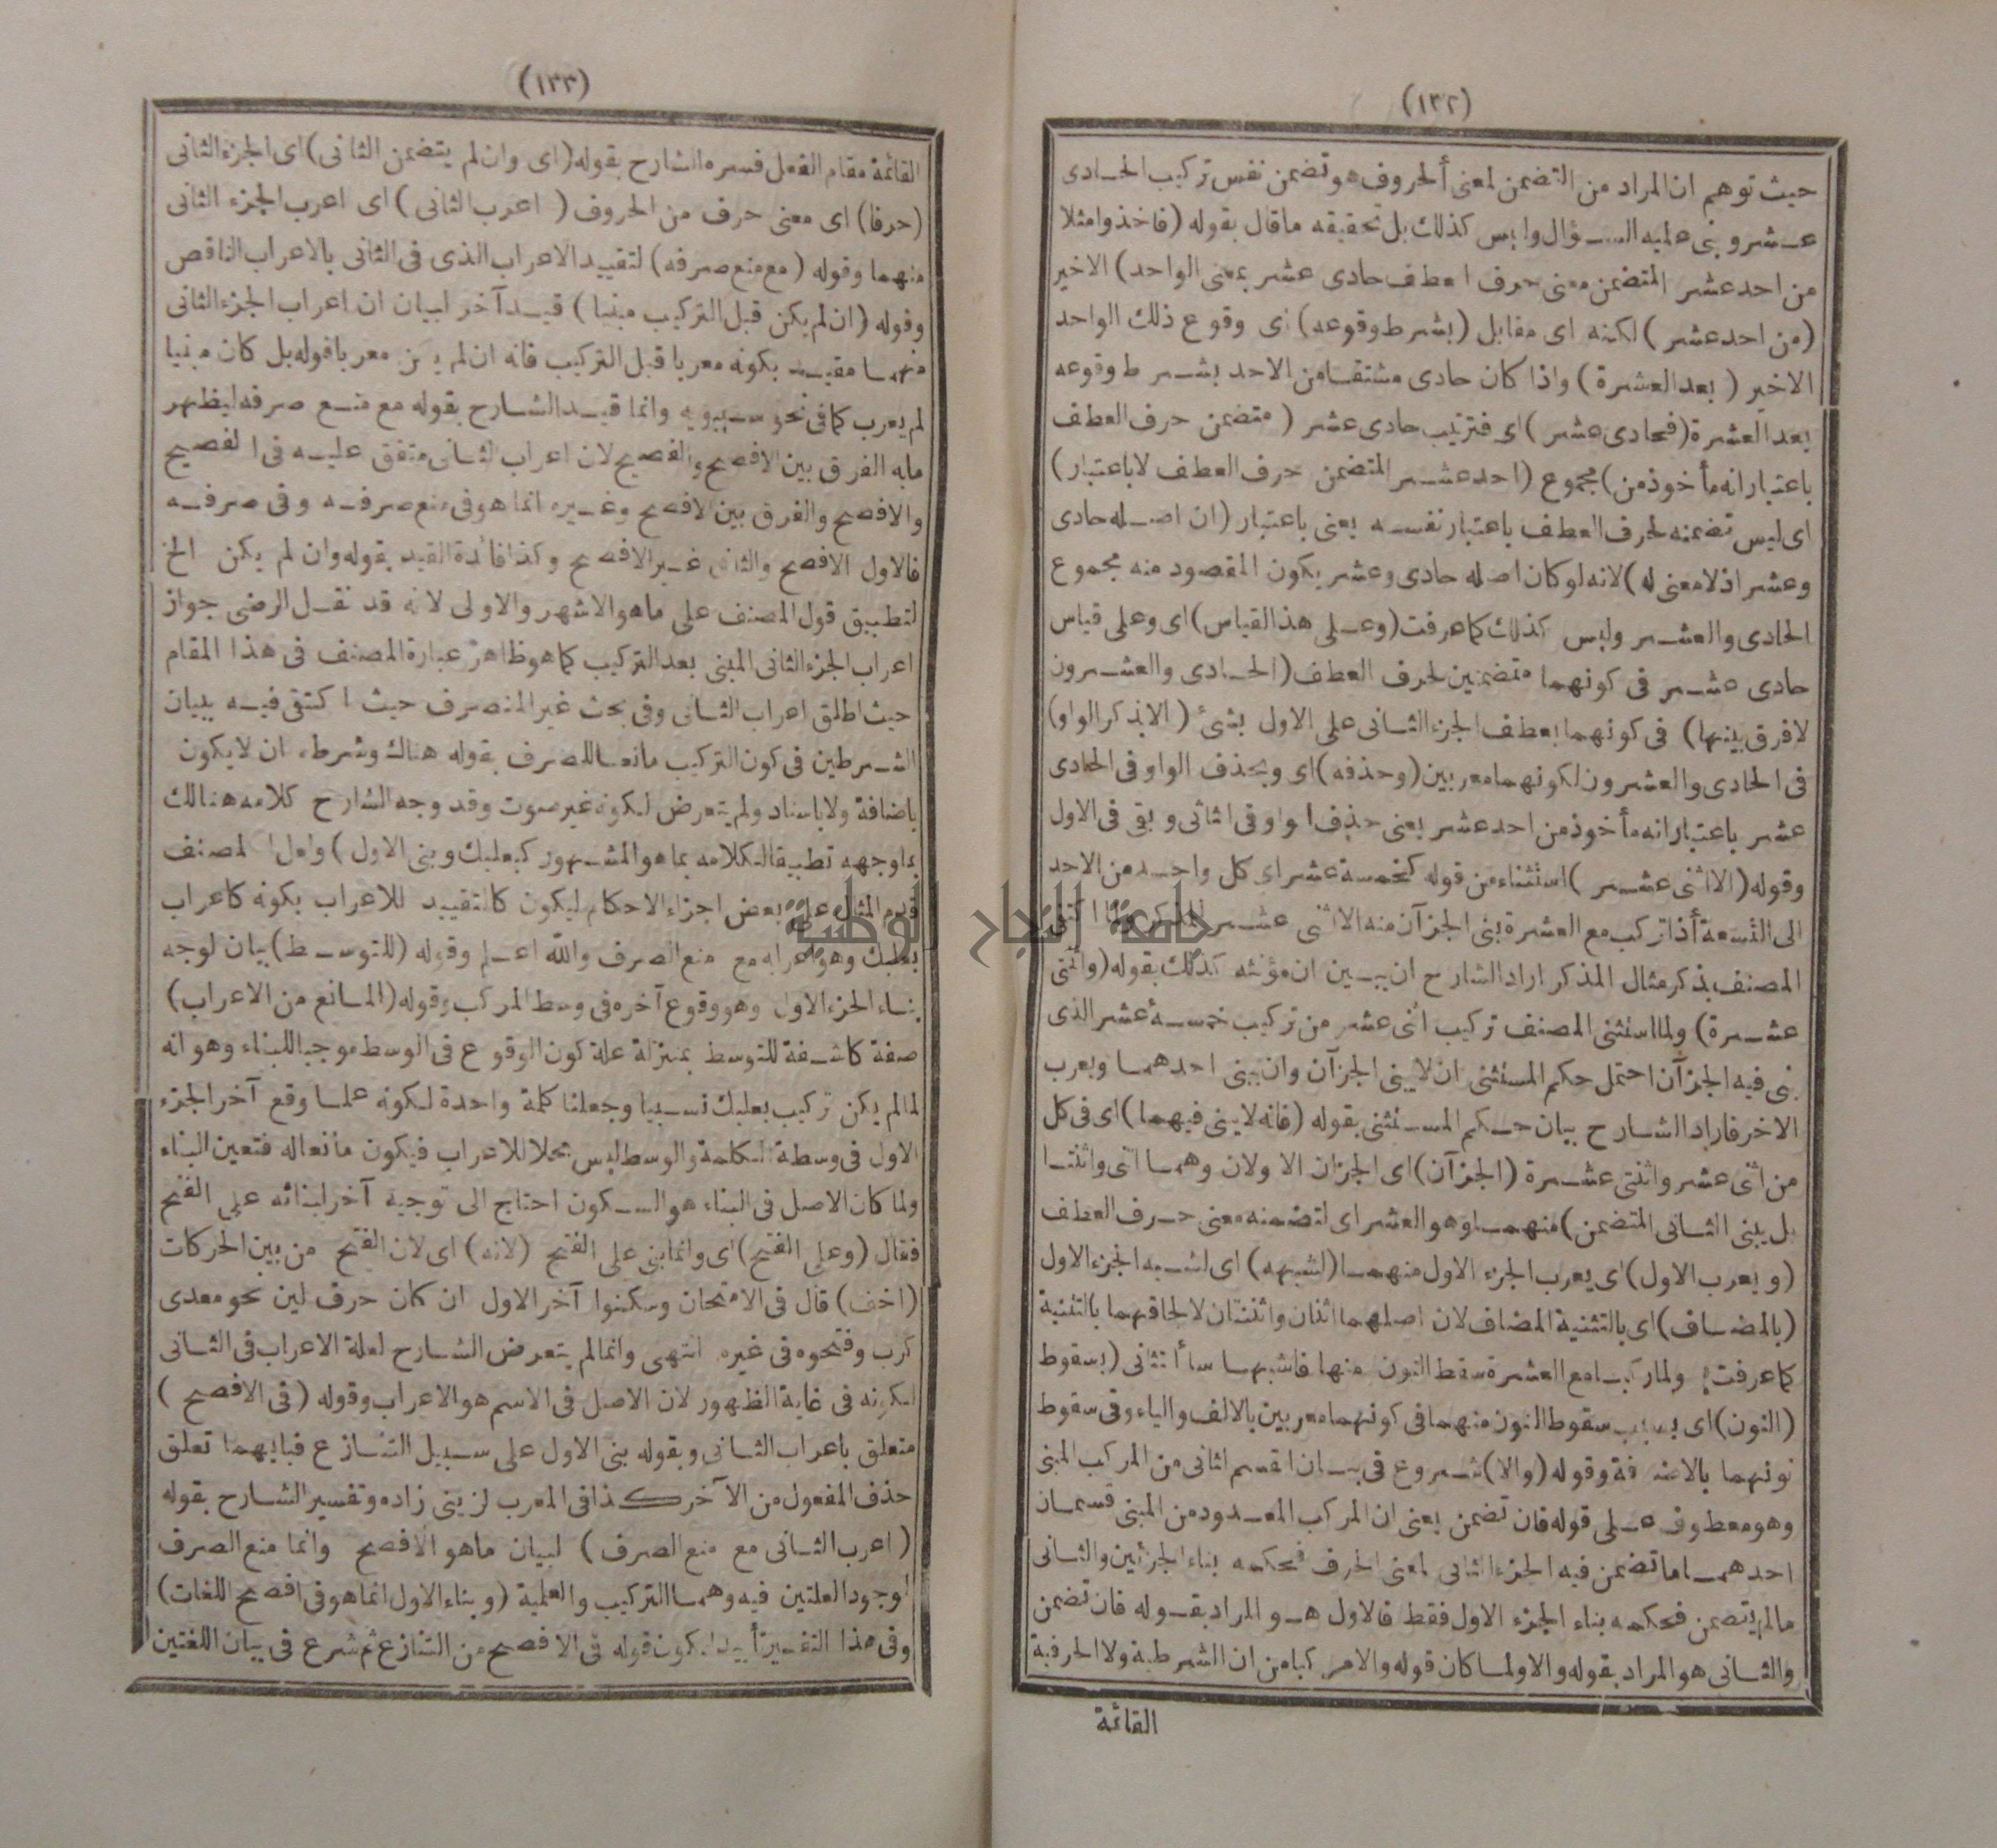 (١٣٢)
حيث توهم ان المراد من التضمن لمعنى ألحروف هو تضمن نفس تركيب الحادى
عشر وبنى عليه السؤال وليس كذلك بل تحقيقه ما قال بقوله (فاخذوا مثلا
من احد عشر المتضمن معنى حرف العطف حادى عشر بمعنى الواحد) الاخير
(من احد عشر) لكنه اى مقابل (بشرط وقوعه) اى وقوع ذلك الواحد
الاخير (بعد العشرة) واذا كان حادى مشتقا من الاحد بشرط وقوعه
بعد العشرة (فحادى عشر) اى فتركيب حادى عشر (متضمن حرف العطف
باعتبار انه مأخوذ من) مجموع (احد عشر المتضمن حرف العطف لا باعتبار)
اى ليس تضمنه لحرف العطف باعتبار نفسه يعنى باعتبار (ان اصله حادى
وعشر اذ لا معنى له) لانه لو كان اصله حادى وعشر يكون المقصود منه مجموع
الحادى والعشر وليس كذلك كما عرفت (وعلى هذا القياس) اى وعلى قياس
حادى عشر فى كونهما متضمنين لحرف العطف (الحادى والعشرون
لا فرق بينها) فى كونهما بعطف الجزء الثانى على الاول بشئ (الا بذكر الواو)
فى الحادى والعشرون لكونهما معربين (وحذفه) اى وبحذف الواو فى الحادى
عشر باعتبار انه مأخوذ من احد عشر يعنى حذف الواو فى الثانى وبقى فى الاول
وقوله (الا اثنى عشر) استثناء من قوله كخمسة عشر اى كل واحد من الاحد
الى التسعة أذا تركب مع العشرة بنى الجزآن منه الا اثنى عشر
المصنف بذكر مثال المذكر اراد الشارح ان يبين ان مؤنثه كذلك بقوله (واثنتى
عشرة) ولما استثنى المصنف تركيب اثنى عشر من تركيب خمسة عشر الذى
بنى فيه الجزآن احتمل حكم المستثنى ان لا يبنى الجزآن وان يبنى احدهما ويعرب
الاخر فاراد الشارح بيان حكم المستثنى بقوله (فانه لا يبنى فيهما) اى فى كل
من اثنى عشر واثنتى عشرة (الجزآن) اى الجزان الاولان وهما اثنى واثنتا
بل يبنى الثانى المتضمن) منهما وهو العشر اى لتضمنه معنى حرف العطف
(ويعرب الاول) اى يعرب الجزء الاول منهما (لشبهه) اى لشبه الجزء الاول
(بالمضاف) اى بالتثنية المضاف لان اصلهما اثنان واثنتان لالحاقهما بالتثنية
كما عرفت ولما ركبا مع العشرة سقط النون منها فاشبها
(النون) اى بسبب سقوط النون منهما فى كونهما معربين بالالف والياء وفى سقوط
نونهما بالاضافة وقوله (والا) شروع فى بيان القسم الثانى من المركب المبنى
وهو معطوف على قوله فان تضمن يعنى ان المركب المعدود من المبنى قسمان
احدهما ما تضمن فيه الجزء الثانى لمعنى الحرف فحكمه بناء الجزئين والثانى
ما لم يتضمن فحكمه بناء الجزء الاول فقط فالاول هو المراد بقوله فان تضمن
والثانى هو المراد بقوله والا ولما كان قوله والا مركبا من ان الشرطية ولا الحرفية
القائمة
(١٣٣)
القائمة مقام الفعل فسره الشارح بقوله (اى وان لم يتضمن الثانى) اى الجزء الثانى
(حرفا) اى معنى حرف من الحروف (اعرب الثانى) اى اعرب الجزء الثانى
منهما وقوله (مع منع صرفه) لتقييد الاعراب الذى فى الثانى بالاعراب الناقص
وقوله (ان لم يكن قبل التركيب مبنيا) قيد آخر لبيان ان اعراب الجزء الثانى
منهما مقيد بكونه معربا قبل التركيب فانه ان لم يكن معربا قوله بل كان مبنيا
لم يعرب كما فى نحو سيبويه وانما قيد الشارح بقوله مع منع صرفه ليظهر
ما به الفرق بين الافصح والفصيح لان اعراب الثانى متفق عليه فى الفصيح
والافصح والفرق بين الافصح وغيره انما هو فى منع صرفه وفى صرفه
فالاول الافصح والثانى غير الافصح وكذا فائدة القيد بقوله وان لم يكن الخ
لتطبيق قول المصنف على ما هو الاشهر والاولى لانه قد نقل الرضى جواز
اعراب الجزء الثانى المبنى بعد التركيب كما هو ظاهر عبارة المصنف فى هذا المقام
حيث اطلق اعراب الثانى وفى بحث غير المنصرف حيث اكتفى فيه ببيان
الشرطين فى كون التركيب مانعا للصرف بقوله هناك وشرطه ان لا يكون
باضافة ولا باسناد ولم يتعرض لكونه غير صوت وقد وجه الشارح كلامه هنالك
بما وجهه تطبيقا لكلامه بما هو المشهور كبعلبك وبنى الاول) ولعل المصنف
قدم المثال على بعض اجزاء الاحكام ليكون كالتقييد للاعراب بكونه كاعراب
بعلبك وهو اعرابه مع منع الصرف والله اعلم وقوله (للتوسط) بيان لوجه
بناء الجزء الاول وهو وقوع آخره فى وسط المركب وقوله (المانع من الاعراب)
صفة كاشفة للتوسط بمنزلة علة كون الوقوع فى الوسط موجبا للبناء وهو انه
لما لم يكن تركيب بعلبك نسبيا وجعلنا كلمة واحدة لكونه علما وقع آخر الجزء
الاول فى وسطة الكلمة والوسط ليس محلا للاعراب فيكون مانعا له فتعين البناء
ولما كان الاصل فى البناء هو السكون احتاج الى توجيه آخر لبنائه على الفتح
فقال (وعلى الفتح) اى وانما بنى على الفتح (لانه) اى لان الفتح من بين الحركات
(اخف) قال فى الامتحان وسكنوا آخر الاول ان كان حرف لين نحو معدى
كرب وفتحوه فى غيره انتهى وانما لم يتعرض الشارح لعلة الاعراب فى الثانى
لكونه فى غاية الظهور لان الاصل فى الاسم هو الاعراب وقوله (فى الافصح)
متعلق باعراب الثانى وبقوله بنى الاول على سبيل التنازع فبايهما تعلق
حذف المفعول من الآخر كذا فى المعرب لزينى زاده وتفسير الشارح بقوله
(اعرب الثانى مع منع الصرف) لبيان ما هو الافصح وانما منع الصرف
لوجود العلتين فيه وهما التركيب والعلمية (وبناء الاول انما هو فى افصح اللغات)
وفى هذا التفسير تأييد لكون قوله فى الافصح من التنازع ثم شرع فى بيان اللغتين
جامعة النجاح الوطنية